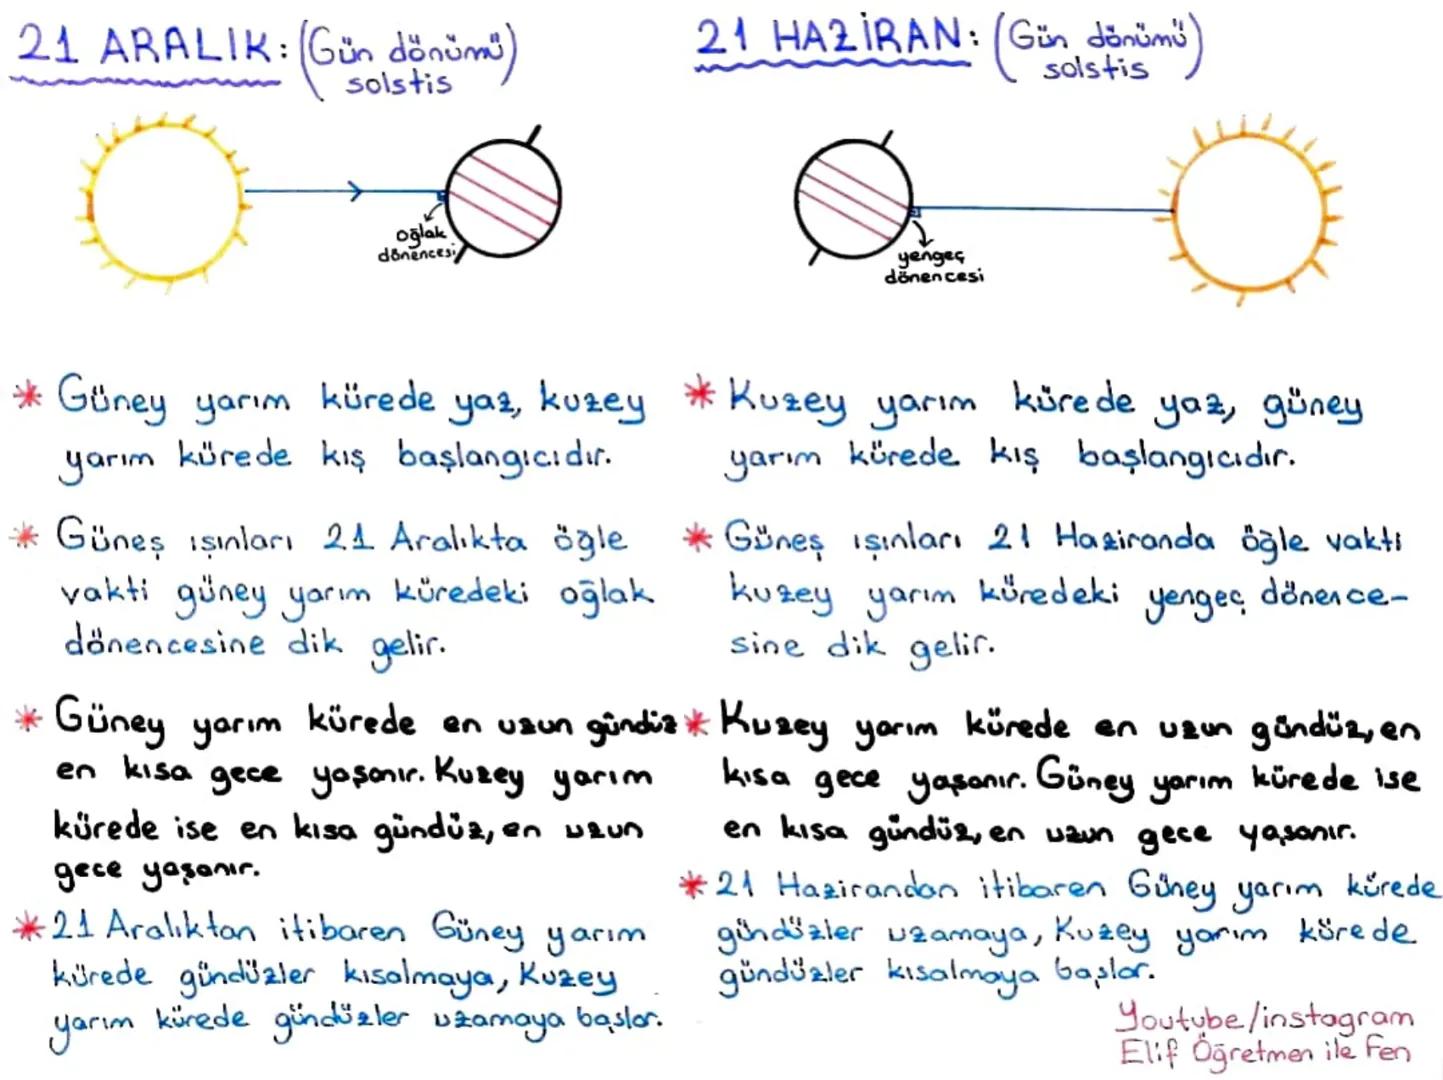 21 ARALIK: (Gün dönümü)
solstis
oğlak
dönencesi
Güney yarım kürede yaz, kuzey
yarım kürede kış başlangıcıdır.
Güneş ışınları 21 Aralıkta öğle
vakti güney yarım küredeki oğlak
dönencesine dik gelir.
Güney yarım kürede en uzun gündüz
en kısa gece yaşanır. Kuzey yarım
kürede ise en kısa gündüz, en uzun
gece yaşanır.
21 Aralıktan itibaren Güney yarım
kürede gündüzler kısalmaya, Kuzey
yarım kürede gündüzler uzamaya başlar.
21 HAZİRAN: (Gün dönümü)
solstis
yengeç
dönencesi
Kuzey yarım kürede yaz, güney
yarım kürede kış başlangıcıdır.
Güneş ışınları 21 Haziranda öğle vakti
kuzey yarım küredeki yengeç dönence-
sine dik gelir.
Kuzey yarım kürede en uzun gündüz, en
kısa gece yaşanır. Güney yarım kürede ise
en kısa gündüz, en uzun gece yaşanır.
21 Hazirandan itibaren Güney yarım kürede
gündüzler uzamaya, Kuzey yarım kürede
gündüzler kısalmaya başlar.
Youtube/instagram
Elif Öğretmen ile Fen